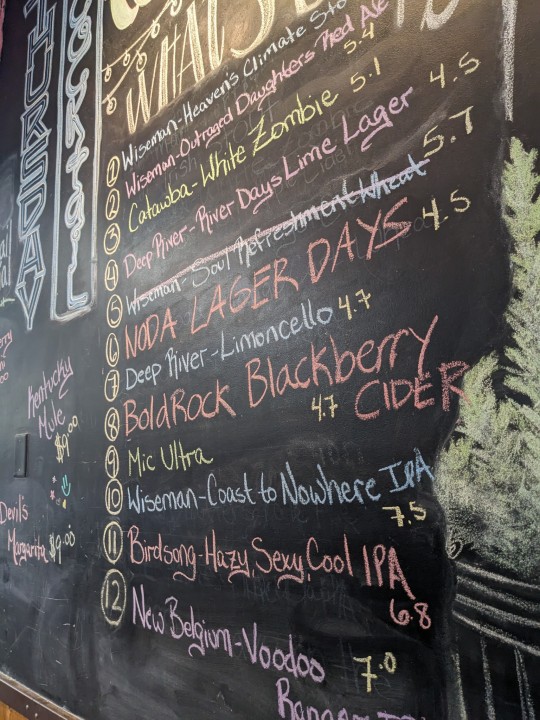 THURSDAY
Cocktail
WHAT'S
1 Wiseman-Heaven's Climate
5.4
2 Wiseman-Outraged Daughters Red Ale
3 Catawba-White Zombie 5.1
4 Deep River-River Days Lime Lager 4.5
5 Wiseman-Soul Refreshment Wheat 5.7
6 NODA LAGER DAYS 4.5
7 Deep River-Limoncello 4.7
8 BoldRock Blackberry
4.7 CIDER
9 Mic Ultra
10 Wiseman-Coast to Nowhere IPA
7.5
11 Birdsong-Hazy, Sexy, Cool IPA
6.8
12 New Belgium-Voodoo 7.0
Ranger
Kentucky
Mule
$9.00
Devil's
Margarita $9.00